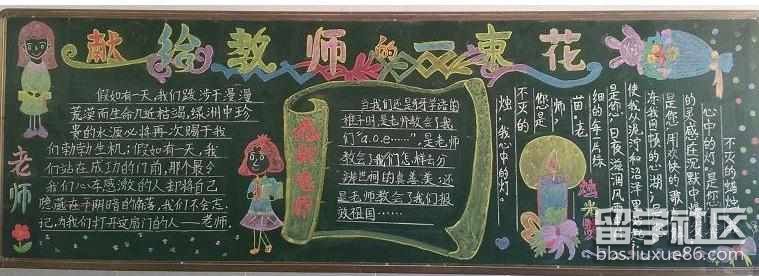 献给教师的一束花
老师
假如有一天,我们跋涉于漫漫
荒漠而生命几近枯竭,绿洲中珍
贵的水源必将再次赐于我
们勃勃生机;假如有一天,我
们站在成功的门前,那个最令
我们心存感激的人却将自己
隐藏在于阴暗的角落,我们不会忘
记,为我们打开这扇门的人——老师。
感谢老师
当我们还是牙牙学语的
稚子时,是老师教会了我
们"a.o.e……",是老师
教会了我们怎样去分
辨世间的真善美;还
是老师教会了我们报
效祖国……
不灭的蜡烛
心中的灯。是您
的灵感在沉默中爆
是您,用欢快的歌
冻我日牧的心湖,是
使我从泥河和沼泽里
是您,日夜滋润风雨
细的年片绿
苗。老
师,
您是
不灭的
烛,我心中的灯。
烛光
留学社区
bbs.liuxue86.com